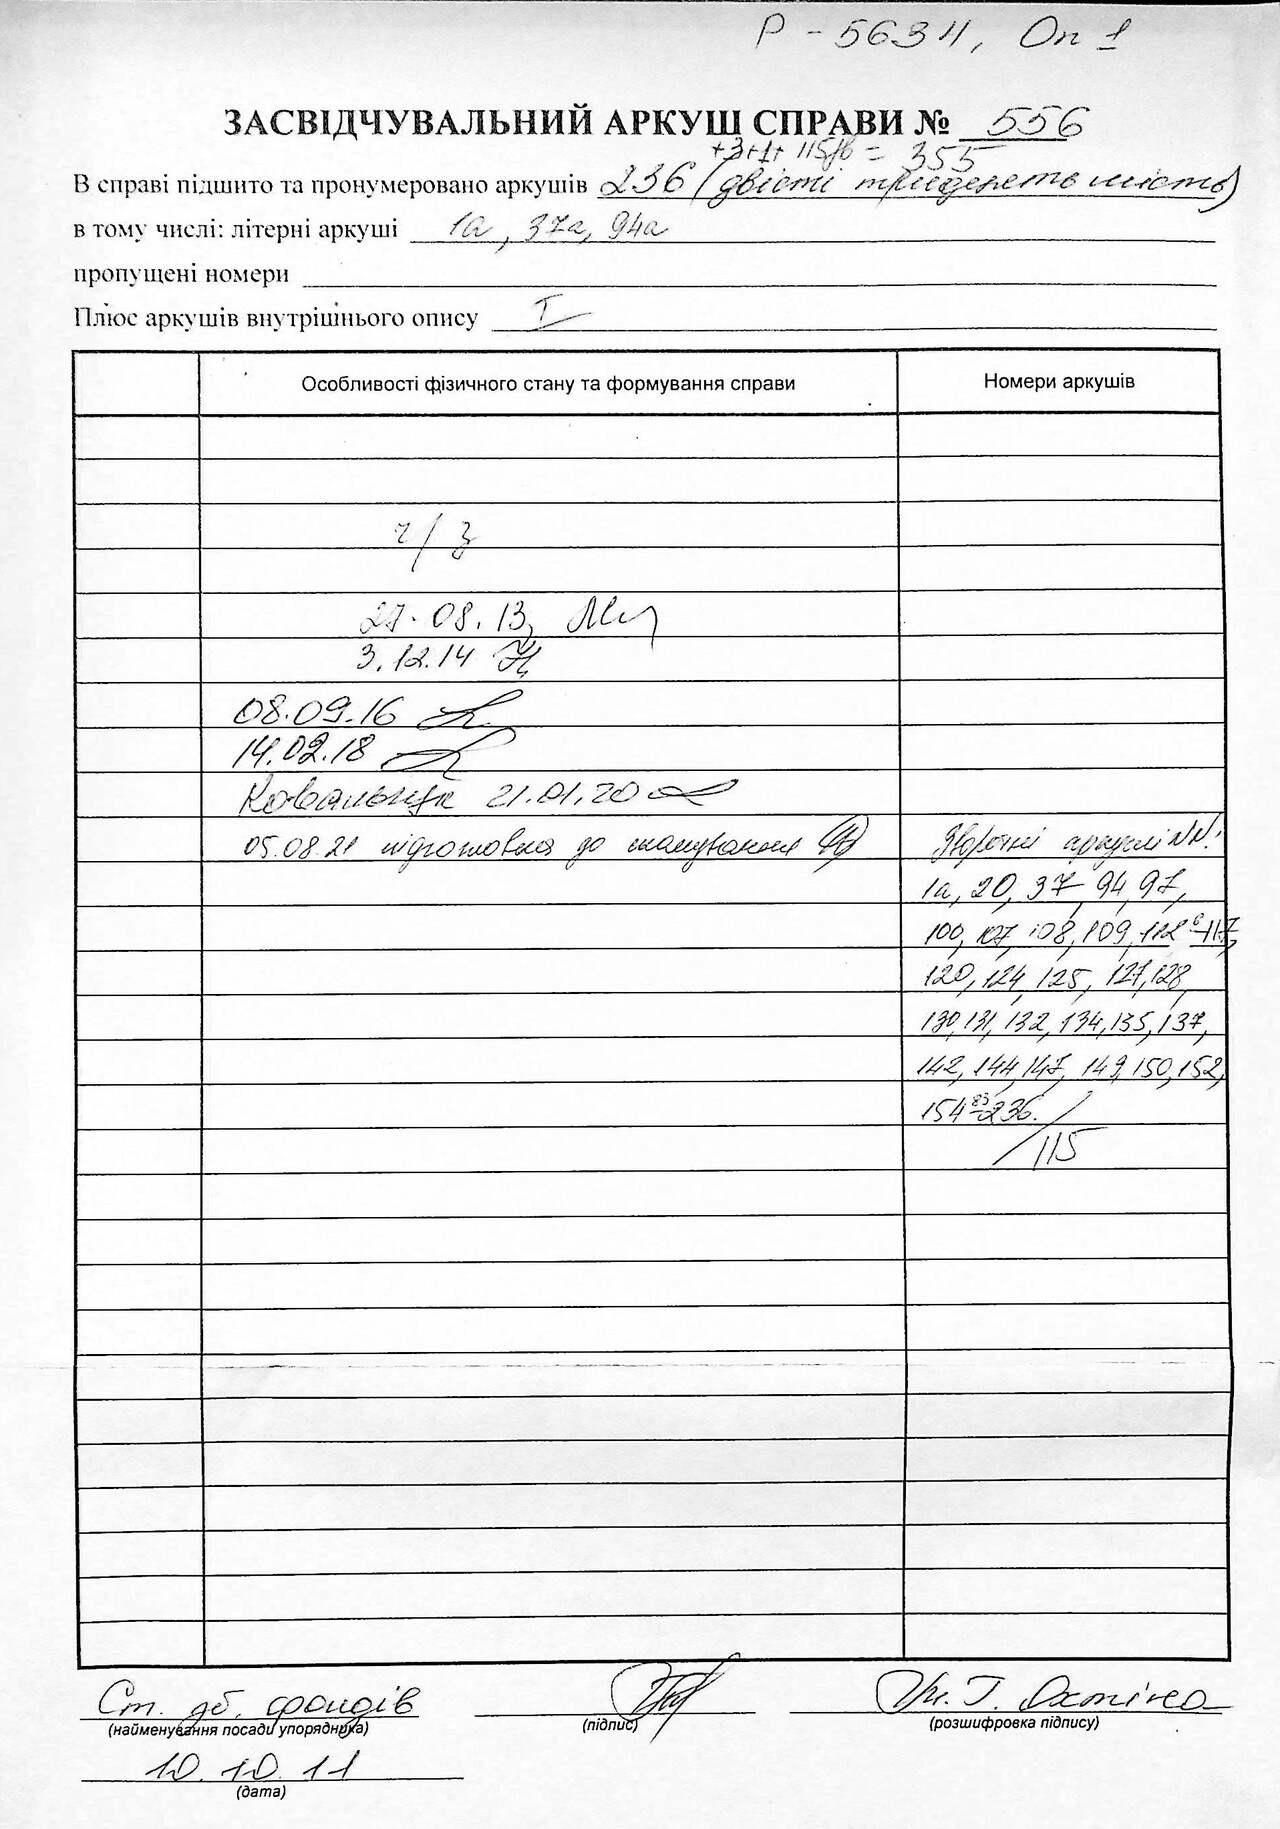 Р - 5634, Оп 1
ЗАСВІДЧУВАЛЬНИЙ АРКУШ СПРАВИ № 556
+3+1+ 115зв = 355
В справі підшито та пронумеровано аркушів 236 (двісті тридцять шість)
в тому числі: літерні аркуші 1а, 37а, 94а
пропущені номери
Плюс аркушів внутрішнього опису I
Особливості фізичного стану та формування справи
Номери аркушів
ч/з
27.08.13,
3.12.14
08.09.16
14.02.18
Ковальчук 21.01.20
05.08.21 підготовка до сканування
Зворотні аркуші №№:
1а, 20, 37, 94, 97,
100, 107, 108, 109, 112 6 -117,
120, 124, 125, 127, 128,
130, 131, 132, 134, 135, 137,
142, 144, 147, 149, 150, 152,
154 83 -236.
/115
Ст. зб. фондів
(найменування посади упорядника)
(підпис)
(розшифровка підпису)
10.10.11
(дата)